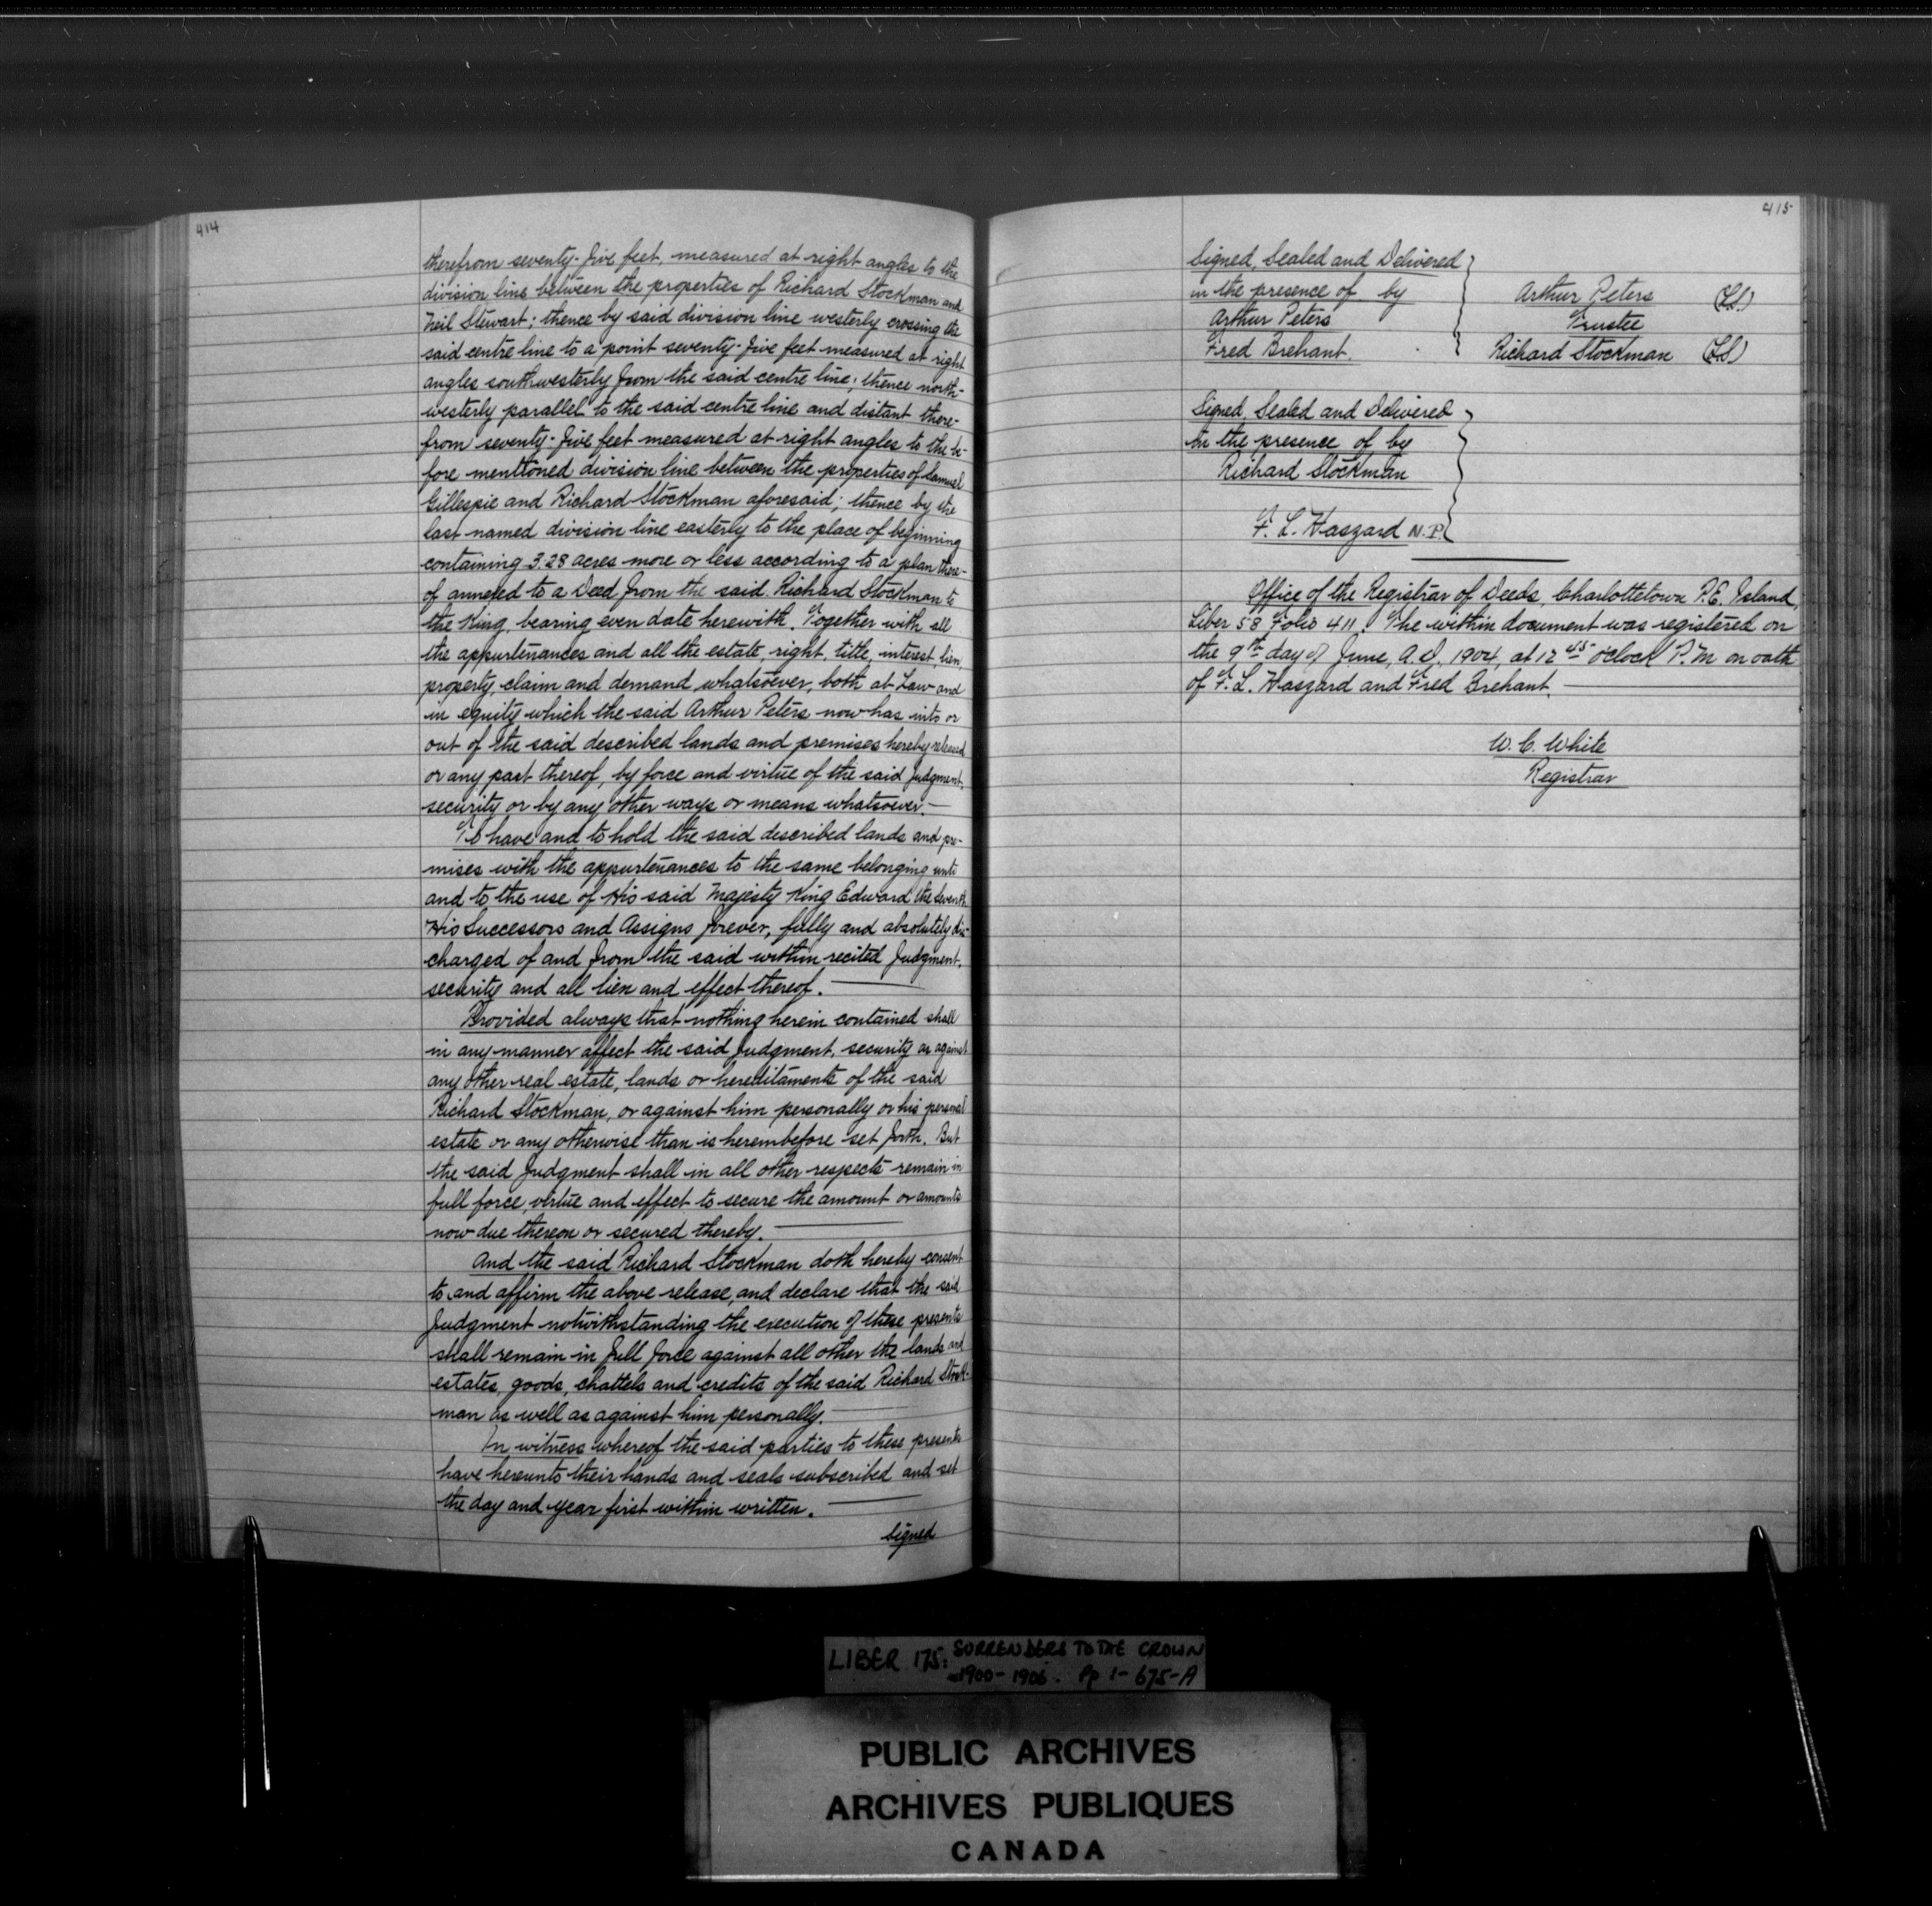 414
therefrom seventy-five feet, measured at right angles to the
division line between the properties of Richard Stockman and
Neil Stewart; thence by said division line westerly crossing the
said centre line to a point seventy-five feet measured at right
angles southwesterly from the said centre line; thence north-
westerly parallel to the said centre line and distant there-
from seventy-five feet measured at right angles to the be-
fore mentioned division line between the properties of Samuel
Gillespie and Richard Stockman aforesaid; thence by the
last named division line easterly to the place of beginning
containing 3.28 acres more or less according to a plan there-
of annexed to a Deed from the said Richard Stockman to
the King, bearing even date herewith. Together with all
the appurtenances and all the estate, right, title, interest, lien,
property, claim and demand whatsoever, both at Law and
in equity which the said Arthur Peters now has into or
out of the said described lands and premises hereby released
or any part thereof, by force and virtue of the said Judgment,
security or by any other ways or means whatsoever.—
To have and to hold the said described lands and pre-
mises with the appurtenances to the same belonging unto
and to the use of His said Majesty King Edward the Seventh
His Successors and Assigns forever, fully and absolutely dis-
charged of and from the said within recited Judgment,
security and all lien and effect thereof.—
Provided always that nothing herein contained shall
in any manner affect the said Judgment, security as against
any other real estate, lands or hereditaments of the said
Richard Stockman, or against him personally or his personal
estate or any otherwise than is hereinbefore set forth. But
the said Judgment shall in all other respects remain in
full force, virtue and effect to secure the amount or amounts
now due thereon or secured thereby.—
And the said Richard Stockman doth hereby consent
to and affirm the above release, and declare that the said
Judgment notwithstanding the execution of these presents
shall remain in full force against all other the lands and
estates, goods, chattels and credits of the said Richard Stock-
man as well as against him personally.—
In witness whereof the said parties to these presents
have hereunto their hands and seals subscribed and set
the day and year first within written.—
Signed
415
Signed, Sealed and Delivered
in the presence of by
Arthur Peters
Fred Brehant.
Arthur Peters (LS)
Trustee
Richard Stockman (LS)
Signed Sealed and Delivered
in the presence of by
Richard Stockman
F. L. Haszard N.P.
Office of the Registrar of Deeds, Charlottetown P.E. Island,
Liber 58 Folio 411. The within document was registered on
the 9th day of June, A.D. 1904, at 12 45 oclock P.M on oath
of F. L. Haszard and Fred Brehant.—
W. C. White
Registrar
LIBER 175: SURRENDERS TO THE CROWN
1900-1906. Pp 1-675-A
PUBLIC ARCHIVES
ARCHIVES PUBLIQUES
CANADA